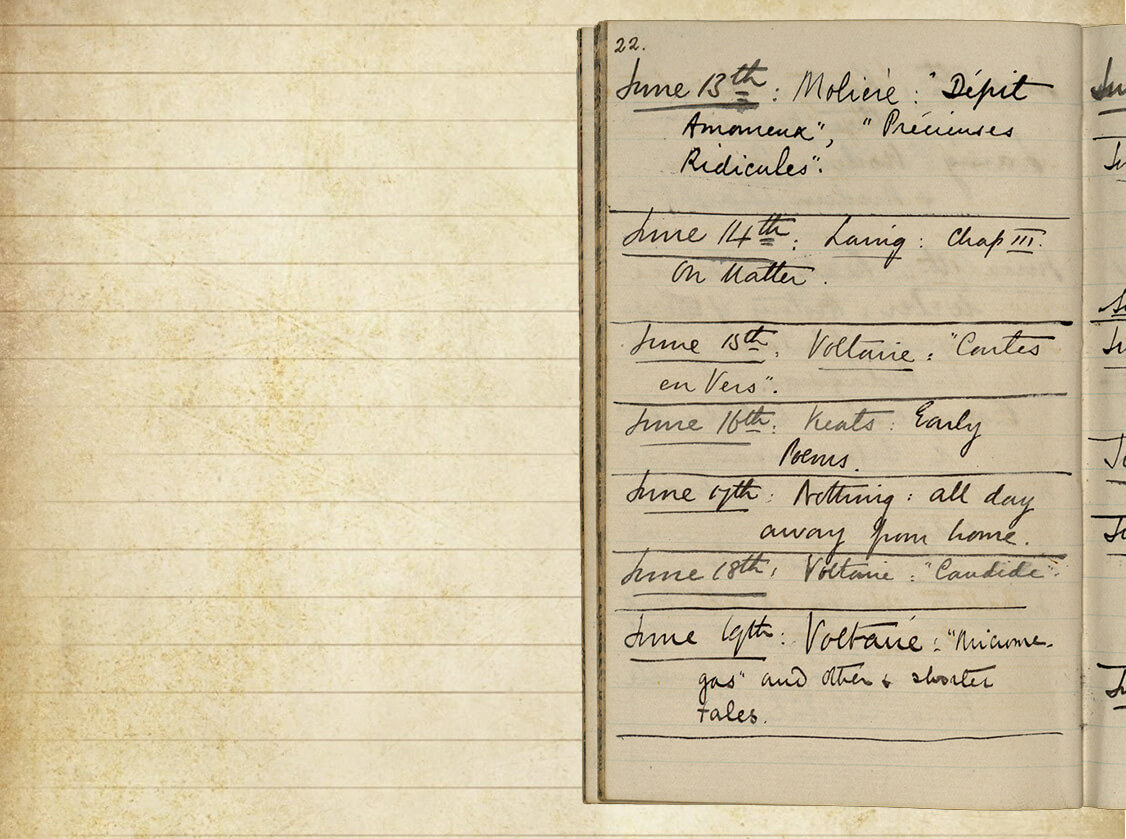 22.
June 13th: Molière: "Dépit
Amoureux", "Précieuses
Ridicules".
June 14th: Laing: Chap III.
On Matter.
June 15th: Voltaire: "Contes
en Vers".
June 16th: Keats: Early
Poems.
June 17th: Nothing: all day
away from home.
June 18th: Voltaire: "Candide".
June 19th: Voltaire: "Microme-
gas" and other shorter
tales.